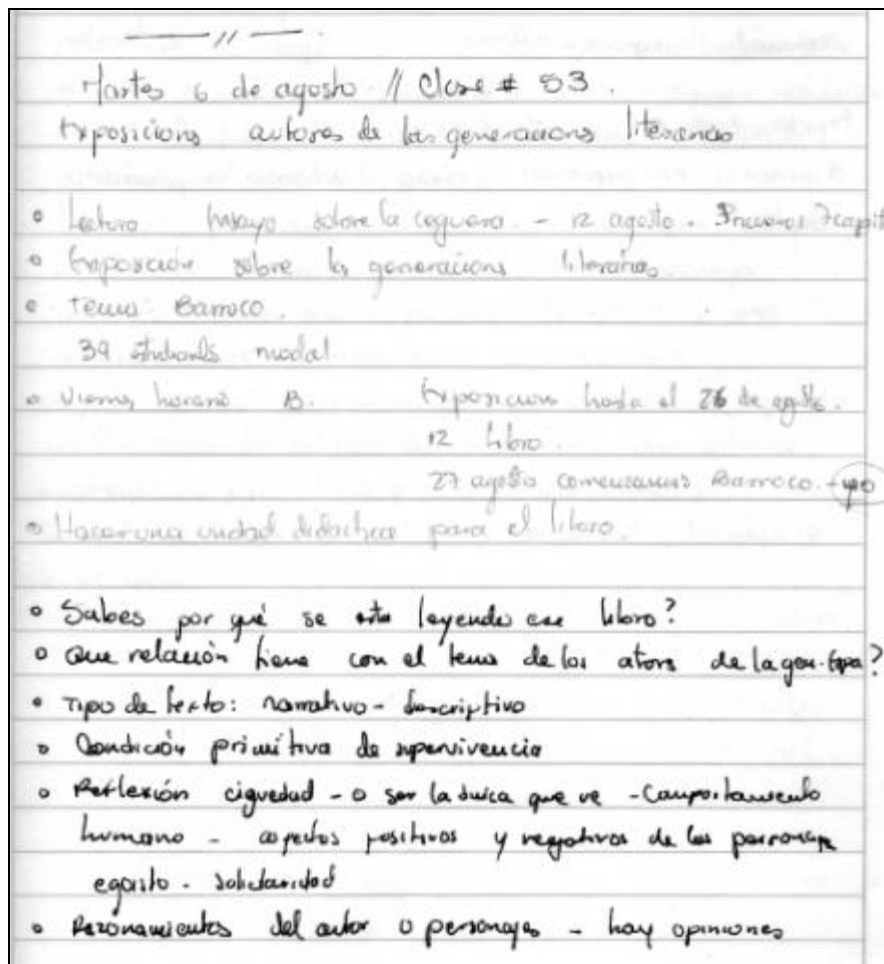 — // — .
Martes 6 de agosto // Clase # 53.
Exposicions autores de las generacions literarias
• Lectura Ensayo sobre la ceguera - 12 agosto. Primeros 7 capit
• Exposición sobre las generacions literarias
• Tema: Barroco.
39 estudiants modal.
• Viernes horario B. Exposicions hasta el 26 de agosto.
12 libro.
27 agosto comenzamos Barroco.
• Hacer una unidad didactica para el libro.
• Sabes por qué se esta leyendo ese libro?
• Que relación tiene con el tema de los de la gen.
• Tipo de texto: narrativo - descriptivo
• Condición primitiva de supervivencia
• Reflexión ciguedad - o ser la única que ve - Comportamiento
humano - aspectos positivos y negativos de los personaje
egoisto - solidaridad
• Razonamientos del autor o personajes - hay opiniones